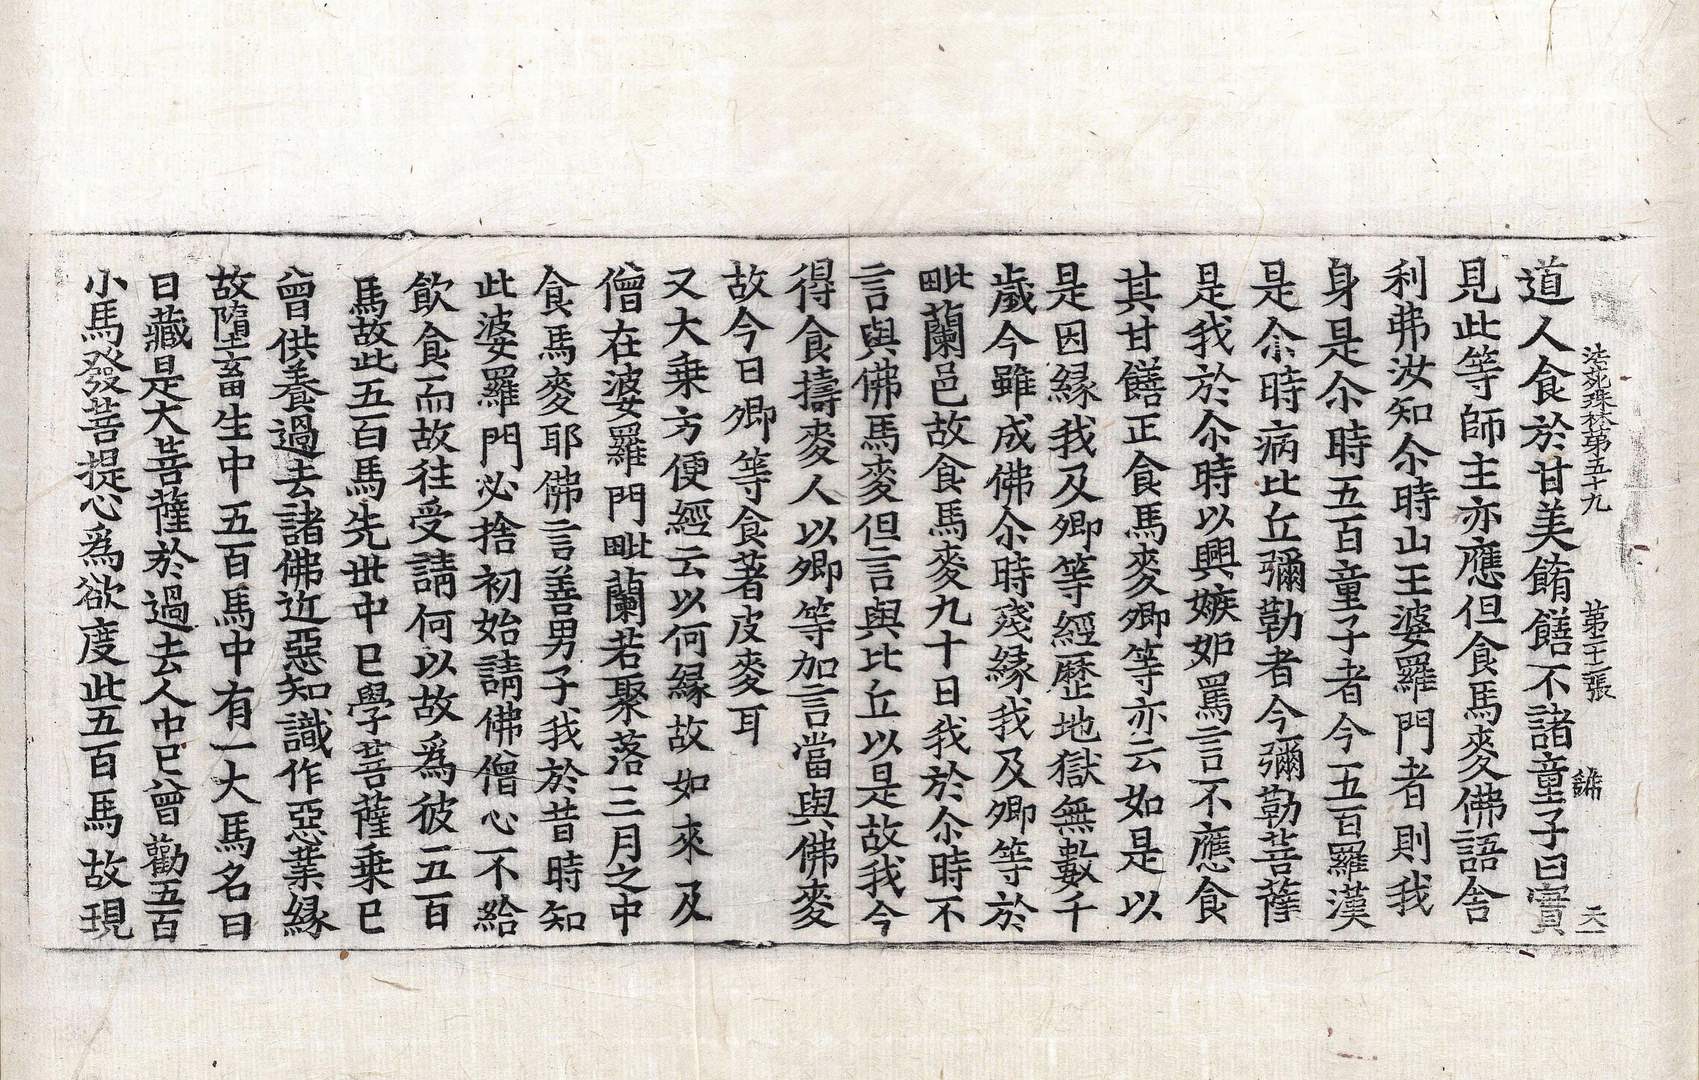 法苑珠林第五十九　第二十二張　𨦟　六
道人食於甘美餚饍不諸童子曰實
見此等師主亦應但食馬麥佛語舍
利弗汝知尒時山王婆羅門者則我
身是尒時五百童子者今五百羅漢
是尒時病比丘彌勒者今彌勒菩薩
是我於尒時以興嫉妬罵言不應食
其甘饍正食馬麥卿等亦云如是以
是因緣我及卿等經歷地獄無數千
歲今雖成佛尒時殘緣我及卿等於
毗蘭邑故食馬麥九十日我於尒時不
言與佛馬麥但言與比丘以是故我今
得食擣麥人以卿等加言當與佛麥
故今日卿等食著皮麥耳
又大乘方便經云以何緣故如來及
僧在婆羅門毗蘭若聚落三月之中
食馬麥耶佛言善男子我於昔時知
此婆羅門必捨初始請佛僧心不給
飲食而故往受請何以故爲彼五百
馬故此五百馬先世中巳學菩薩乘巳
曾供養過去諸佛近惡知識作惡業緣
故墮畜生中五百馬中有一大馬名曰
日藏是大菩薩於過去人中巳曾勸五百
小馬發菩提心爲欲度此五百馬故現